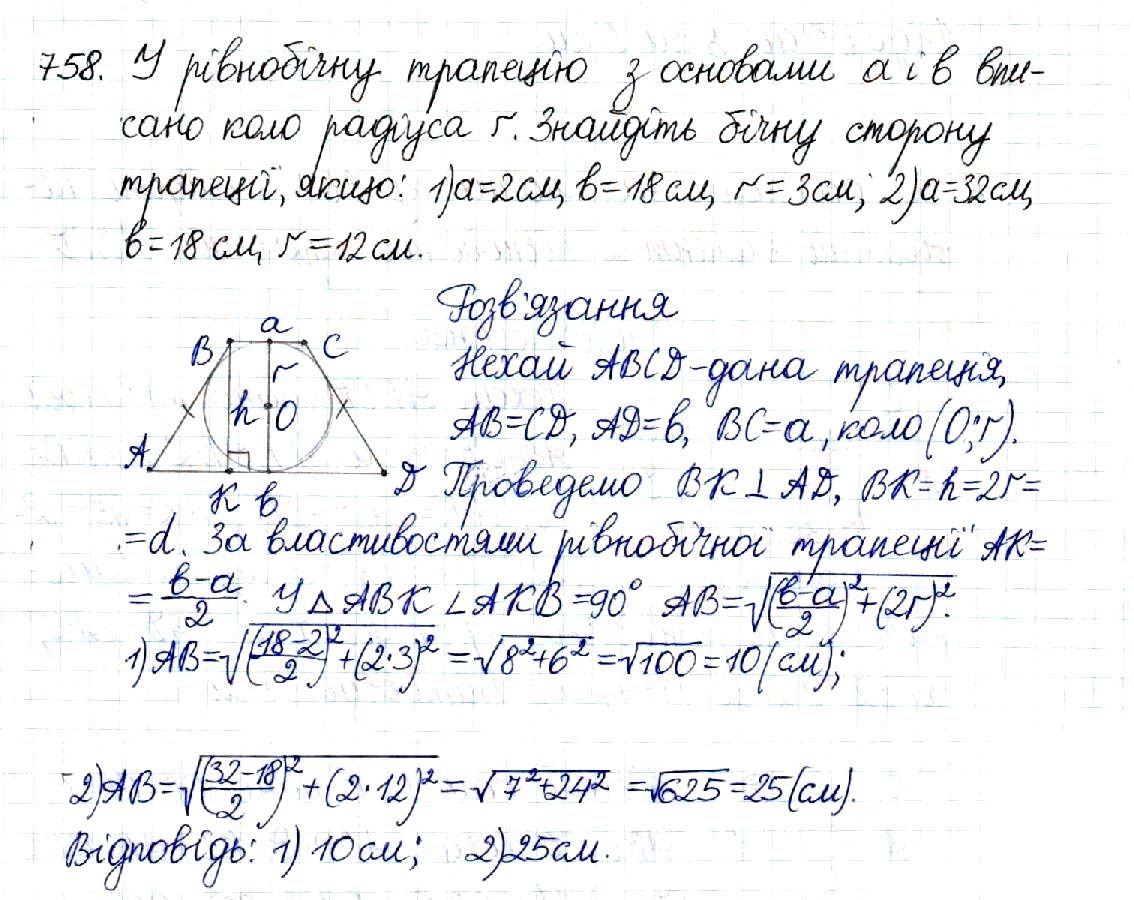 758. У рівнобічну трапецію з основами a і в впи-
сано коло радіуса r. Знайдіть бічну сторону
трапеції, якщо: 1) a=2см, в=18см, r=3см; 2) a=32см,
в=18см, r=12см.
Розв'язання
a
B C
r
h O
A D
K в
Нехай ABCD-дана трапеція,
AB=CD, AD=в, BC=a, коло (O;r).
Проведемо BK⊥AD, BK=h=2r=
=d. За властивостями рівнобічної трапеції AK=
=(в-a)/2. У △ABK ∠AKB=90° AB=√(((в-a)/2)²+(2r)²).
1) AB=√(((18-2)/2)²+(2·3)²)=√(8²+6²)=√100=10(см);
2) AB=√(((32-18)/2)²+(2·12)²)=√(7²+24²)=√625=25(см).
Відповідь: 1) 10см; 2) 25см.